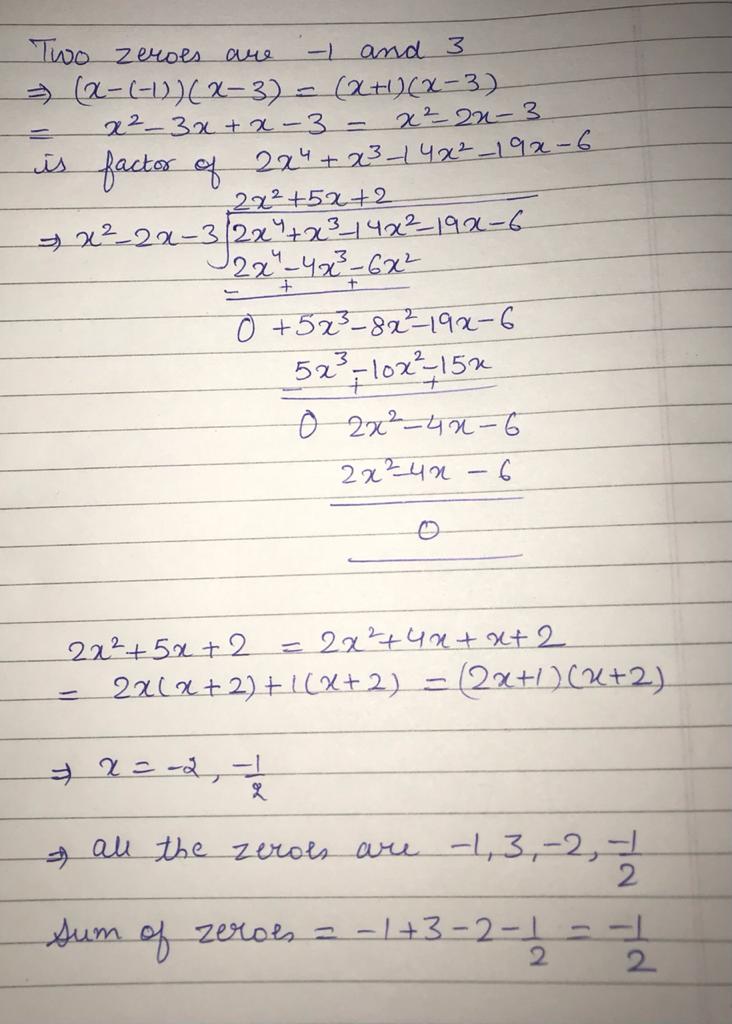 Two zeroes are -1 and 3
⇒ (x-(-1))(x-3) = (x+1)(x-3)
= x²-3x+x-3 = x²-2x-3
is factor of 2x⁴+x³-14x²-19x-6
2x²+5x+2
⇒ x²-2x-3 | 2x⁴+x³-14x²-19x-6
2x⁴-4x³-6x²
- + +
0 +5x³-8x²-19x-6
5x³-10x²-15x
- + +
0 2x²-4x-6
2x²-4x-6
0
2x²+5x+2 = 2x²+4x+x+2
= 2x(x+2)+1(x+2) = (2x+1)(x+2)
⇒ x = -2, -1/2
⇒ all the zeroes are -1, 3, -2, -1/2
Sum of zeroes = -1+3-2-1/2 = -1/2